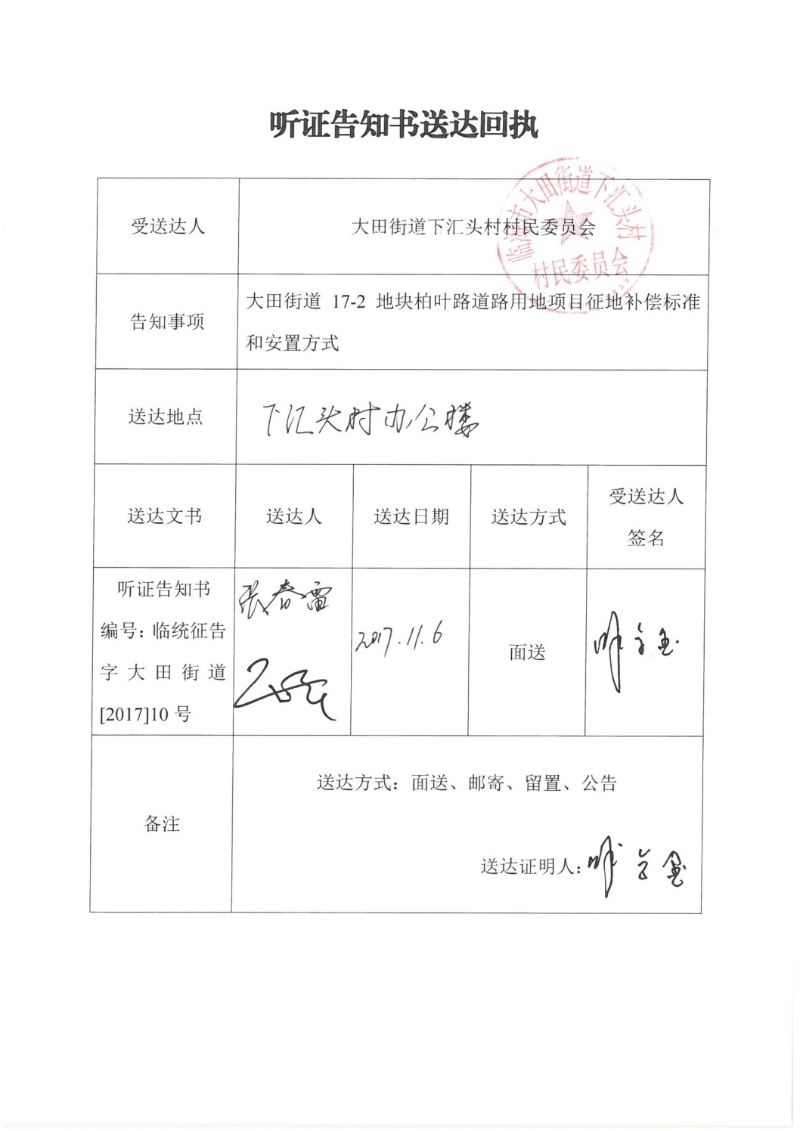 听证告知书送达回执
受送达人
大田街道下汇头村村民委员会
临海市大田街道下汇头村
村民委员会
告知事项
大田街道 17-2 地块柏叶路道路用地项目征地补偿标准
和安置方式
送达地点
下汇头村办公楼
送达文书
送达人
送达日期
送达方式
受送达人
签名
听证告知书
编号：临统征告
字大田街道
[2017]10 号
张春雷
2017.11.6
面送
备注
送达方式：面送、邮寄、留置、公告
送达证明人：